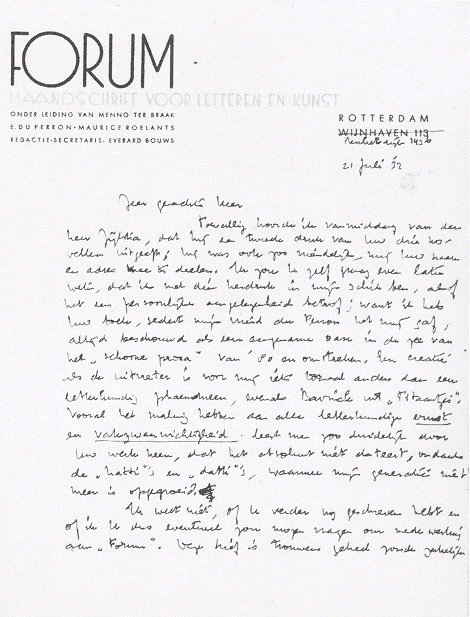 FORUM
MAANDSCHRIFT VOOR LETTEREN EN KUNST
ONDER LEIDING VAN MENNO TER BRAAK
E. DU PERRON - MAURICE ROELANTS
REDACTIE-SECRETARIS: EVERARD BOUWS
ROTTERDAM
WIJNHAVEN 113
21 Juli '32
Zeer geachte Heer
Toevallig hoorde ik vanmiddag van den
heer Zijlstra, dat hij een tweede druk van uw drie no-
vellen uitgeeft; hij was ook zoo vriendelijk, mij uw naam
en adres mee te deelen. Ik zou U zelf graag even laten
weten, dat ik met dien herdruk in mijn schik ben, alsof
het een persoonlijke aangelegenheid betrof; want ik heb
uw boek, sedert mijn vriend du Perron het mij gaf,
altijd beschouwd als een aangename oase in de zee van
het „schoone proza" van '80 en omstreken. Een creatie
als de uitvreter is voor mij iets anders dan een
letterkundig phaenomeen, evenals Bavinck uit „Titaantjes".
Vooral het maling hebben aan alle letterkundige ernst
en vakgewichtigheid leest men zoo duidelijk door
uw werk heen, dat het absoluut niet dateert, ondanks
de „hatti"'s en „datti"'s, waarmee mijn generatie niet
meer is opgegroeid.
Ik weet niet, of U verder nog geschreven hebt en
of ik U dus eventueel zou mogen vragen om medewerking
aan „Forum". Deze brief is trouwens geheel zonder zakelijke